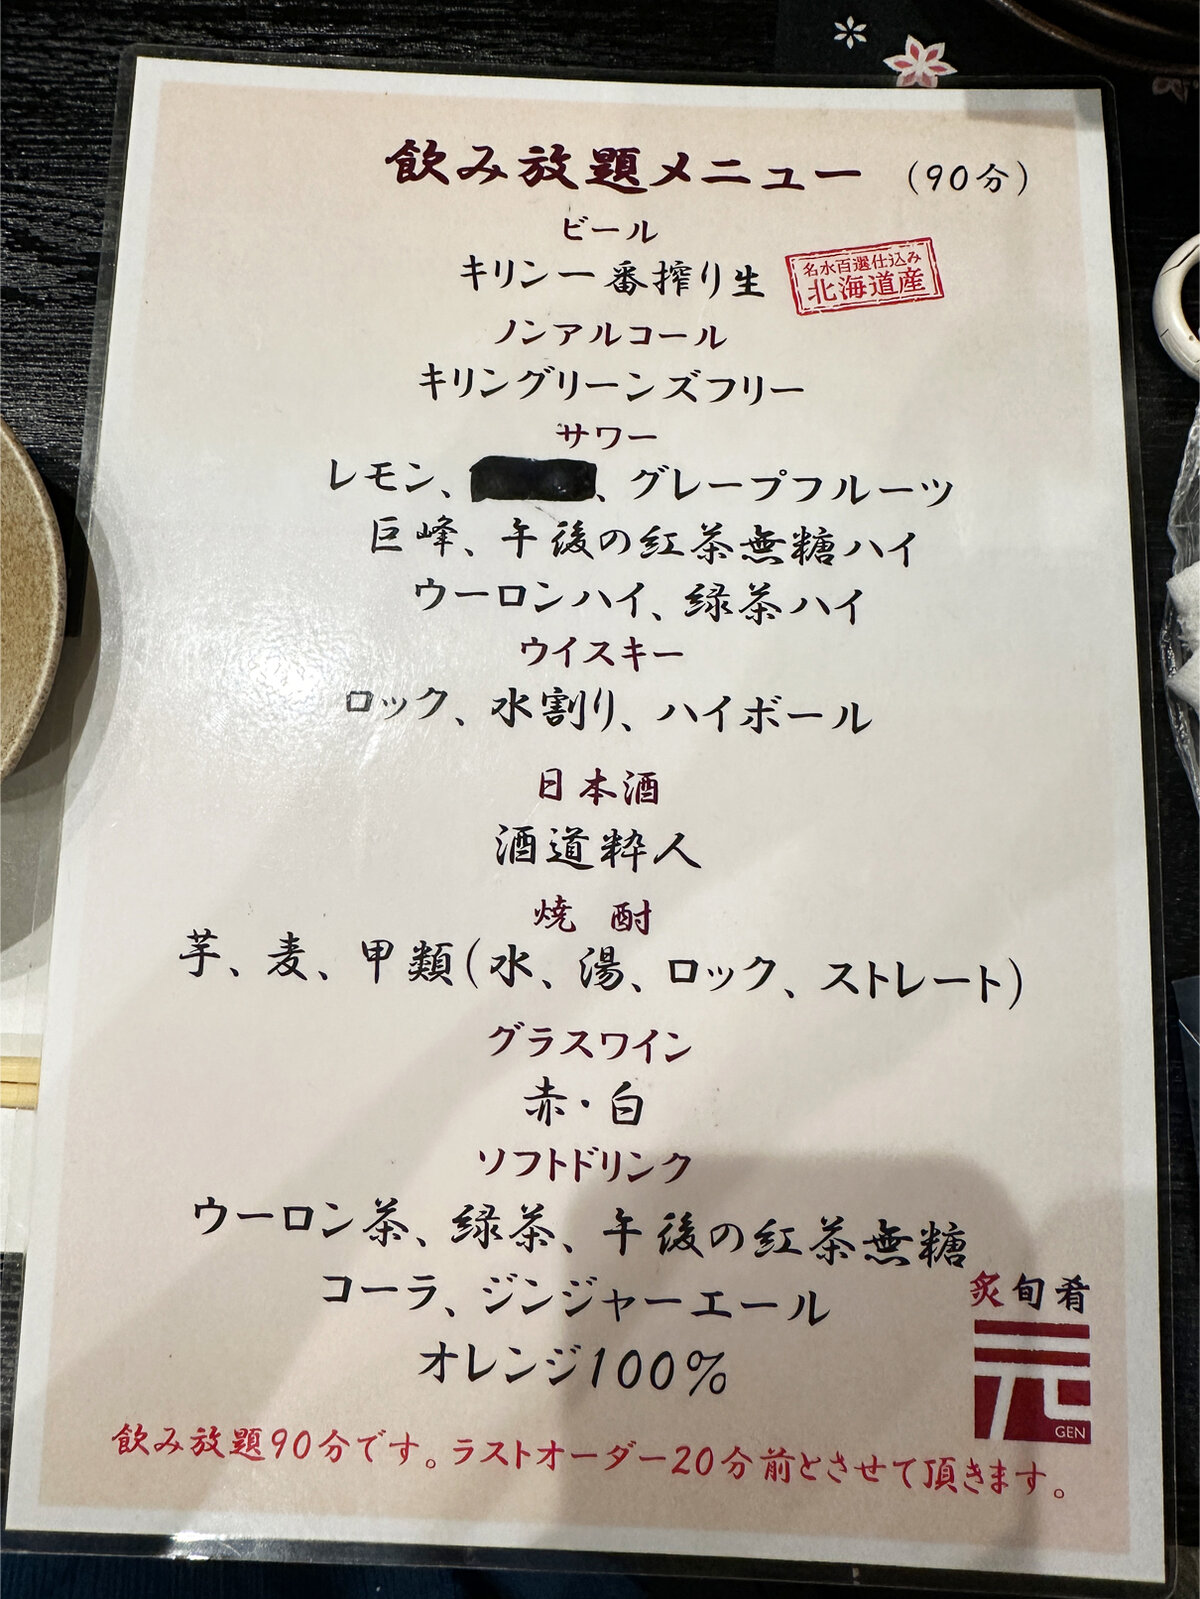 飲み放題メニュー (90分)
ビール
キリン一番搾り生
名水百選仕込み
北海道産
ノンアルコール
キリングリーンズフリー
サワー
レモン、、グレープフルーツ
巨峰、午後の紅茶無糖ハイ
ウーロンハイ、緑茶ハイ
ウイスキー
ロック、水割り、ハイボール
日本酒
酒道粋人
焼酎
芋、麦、甲類(水、湯、ロック、ストレート)
グラスワイン
赤・白
ソフトドリンク
ウーロン茶、緑茶、午後の紅茶無糖
コーラ、ジンジャーエール
オレンジ100%
炙旬肴
元
GEN
飲み放題90分です。ラストオーダー20分前とさせて頂きます。